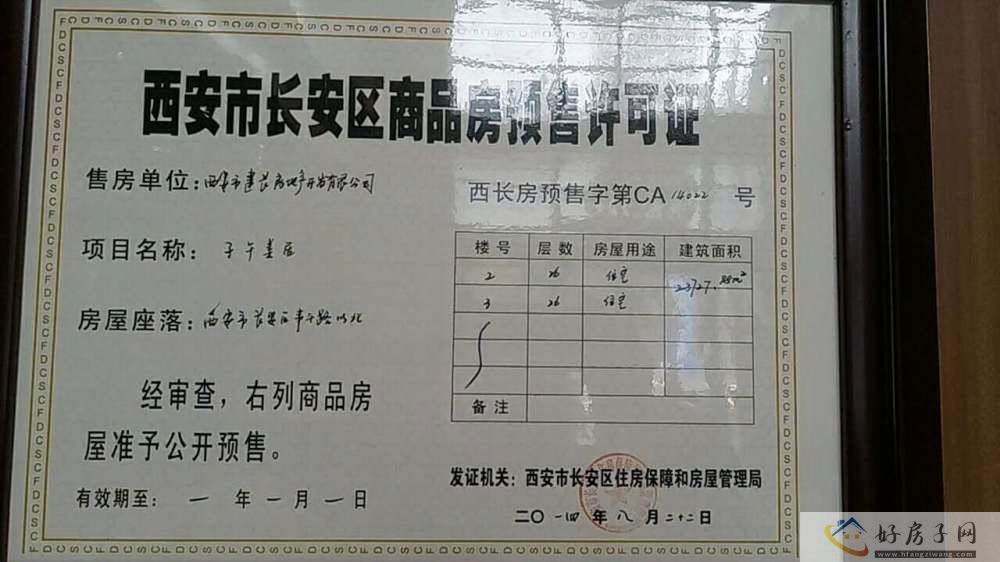 西安市长安区商品房预售许可证
售房单位：西安市建长房地产开发有限公司
西长房预售字第CA 14022 号
项目名称：子午
房屋座落：西安市长安区 以北
楼号 层数 房屋用途 建筑面积
2 26 住宅
3 26 住宅
备注
经审查，右列商品房
屋准予公开预售。
有效期至：一年一月一日
发证机关：西安市长安区住房保障和房屋管理局
二〇一四年八月二十二日
好房子网
www.hfangziwang.com